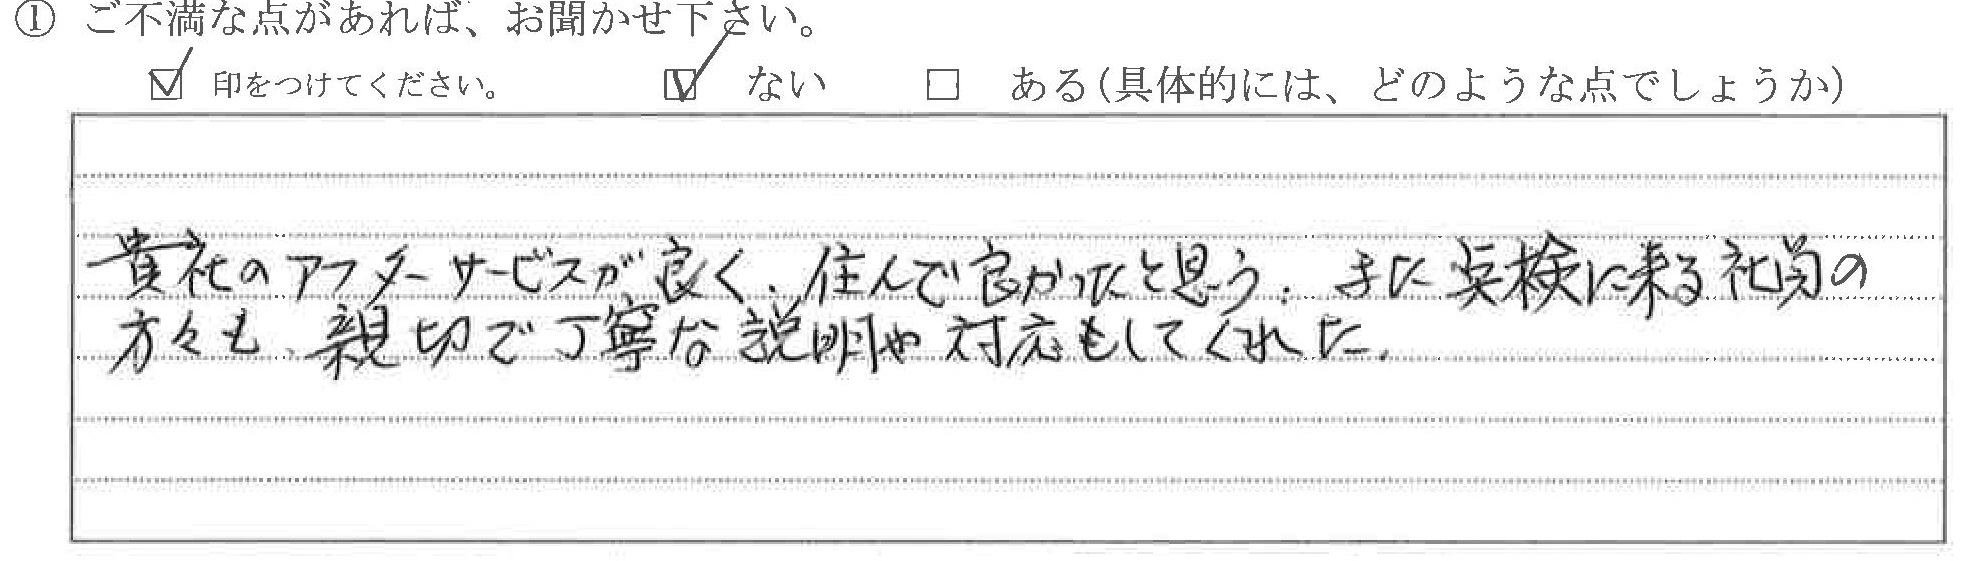 ① ご不満な点があれば、お聞かせ下さい。
☑ 印をつけてください。 ☑ ない □ ある(具体的には、どのような点でしょうか)
貴社のアフターサービスが良く、住んで良かったと思う。また点検に来る社員の
方々も、親切で丁寧な説明や対応もしてくれた。